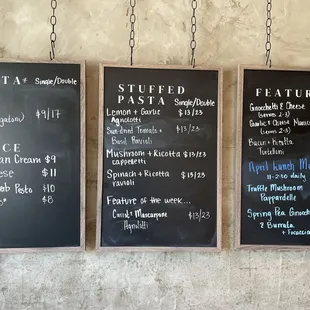 TA* Single/Double
$9/17
CE
an Cream $9
ese $11
Pesto $10
$8
STUFFED
PASTA Single/Double
Lemon + Garlic $13/23
Agnolotti
Sun-dried Tomato + $13/23
Basil Ravioli
Mushroom + Ricotta $13/23
cappelletti
Spinach + Ricotta $13/23
ravioli
Feature of the week...
Carrot + Mascarpone $13/23
Agnolotti
FEATUR
Gnocchetti & Cheese
(serves 2-3)
Garlic & Cheese
(serves 2-3)
Bacon +
Tortellini
April Lunch
11-2:30 daily
Truffle Mushroom
Pappardelle
Spring Pea Gnocc
& Burrata
+ Focaccia